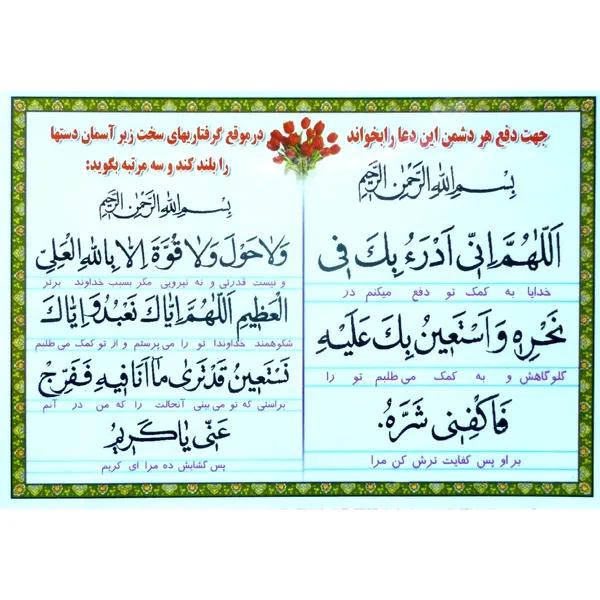 جهت دفع هر دشمن این دعا رابخواند
بِسْمِ اللهِ الرَّحْمٰنِ الرَّحیمِ
اَللّٰهُمَّ اِنّی اَدْرَءُ بِكَ فی
خدایا به کمک تو دفع میکنم در
نَحْرِهِ وَ اَسْتَعینُ بِكَ عَلَیْهِ
گلوگاهش و به کمک می طلبم تو را
فَاكْفِنی شَرَّهُ.
بر او پس کفایت ترش کن مرا
در موقع گرفتاریهای سخت زیر آسمان دستها
را بلند کند و سه مرتبه بگوید:
بِسْمِ اللهِ الرَّحْمٰنِ الرَّحیمِ
وَلاٰحَوْلَ وَلاٰ قُوَّةَ اِلاّٰ بِاللهِ الْعَلِیِّ
و نیست قدرتی و نه نیرویی مگر بسبب خداوند برتر
الْعَظیمِ اَللّٰهُمَّ اِیّٰاكَ نَعْبُدُ وَ اِیّٰاكَ
شکوهمند خداوندا تو را می پرستم و از تو کمک می طلبم
نَسْتَعینُ قَدْ تَرٰی مٰا اَنَا فیهِ فَفَرِّجْ
براستی که تو می بینی آنحالت را که من در آنم
عَنّی یٰا كَریمُ
پس گشایش ده مرا ای کریم